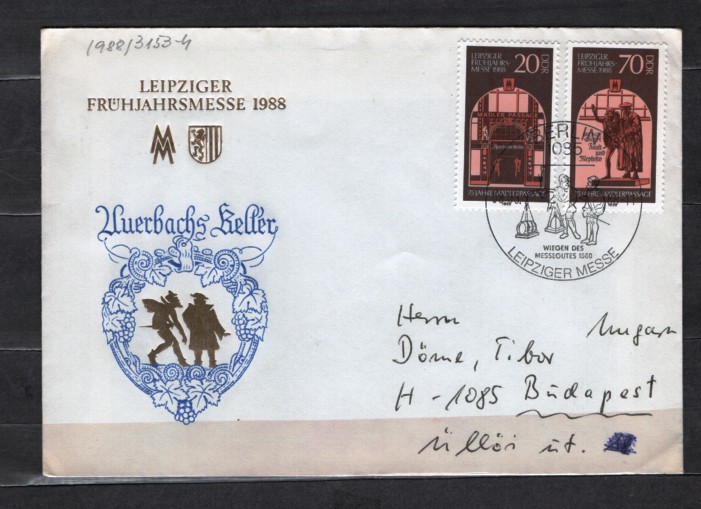 1988/3153-4
LEIPZIGER
FRÜHJAHRSMESSE 1988
MM
Auerbachs Keller
LEIPZIGER
FRÜHJAHRS-
MESSE 1988
20
DDR
MÄDLER PASSAGE
75 JAHRE MÄDLERPASSAGE
LEIPZIGER
FRÜHJAHRS-
MESSE 1988
70
DDR
Faust
und
Mephisto
75 JAHRE MÄDLERPASSAGE
BERLIN
1085
WIEGEN DES
MESSGUTES 1580
LEIPZIGER MESSE
Herrn
Ungarn
Döme, Tibor
H-1085 Budapest
Üllői út.